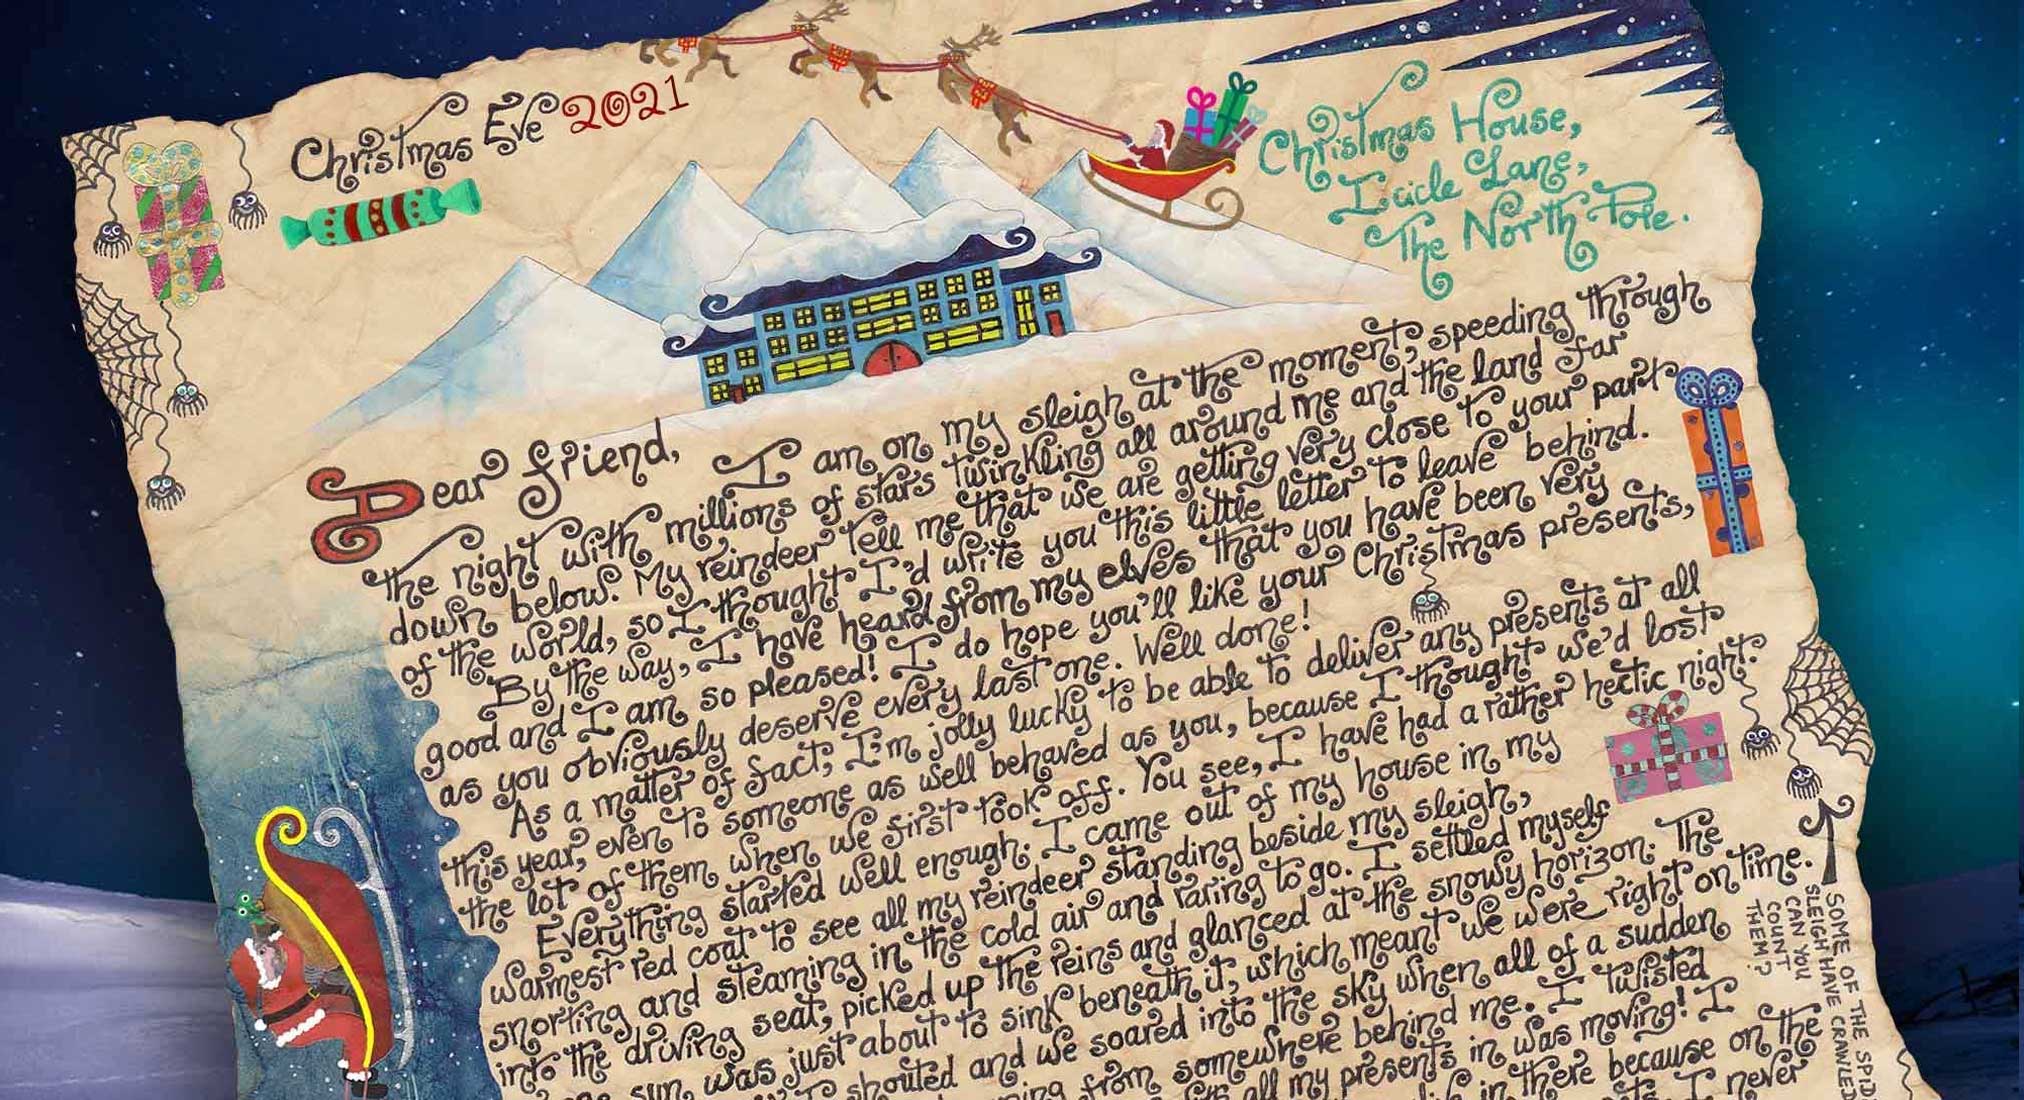 Christmas Eve 2021
Christmas House,
Icicle Lane,
The North Pole.
Dear friend, I am on my sleigh at the moment, speeding through
the night with millions of stars twinkling all around me and the land far
down below. My reindeer tell me that we are getting very close to your part
of the world, so I thought I'd write you this little letter to leave behind.
By the way, I have heard from my elves that you have been very
good and I am so pleased! I do hope you'll like your Christmas presents,
as you obviously deserve every last one. Well done!
As a matter of fact, I'm jolly lucky to be able to deliver any presents at all
this year, even to someone as well behaved as you, because I thought we'd lost
the lot of them when we first took off. You see, I have had a rather hectic night.
Everything started well enough. I came out of my house in my
warmest red coat to see all my reindeer standing beside my sleigh,
snorting and steaming in the cold air and raring to go. I settled myself
into the driving seat, picked up the reins and glanced at the snowy horizon. The
sun was just about to sink beneath it, which meant we were right on time.
I shouted and we soared into the sky when all of a sudden
from somewhere behind me. I twisted
all my presents in was moving! I
in there because on the
I never
SOME OF THE
SLEIGH HAVE CRAWLED
CAN YOU
COUNT
THEM?